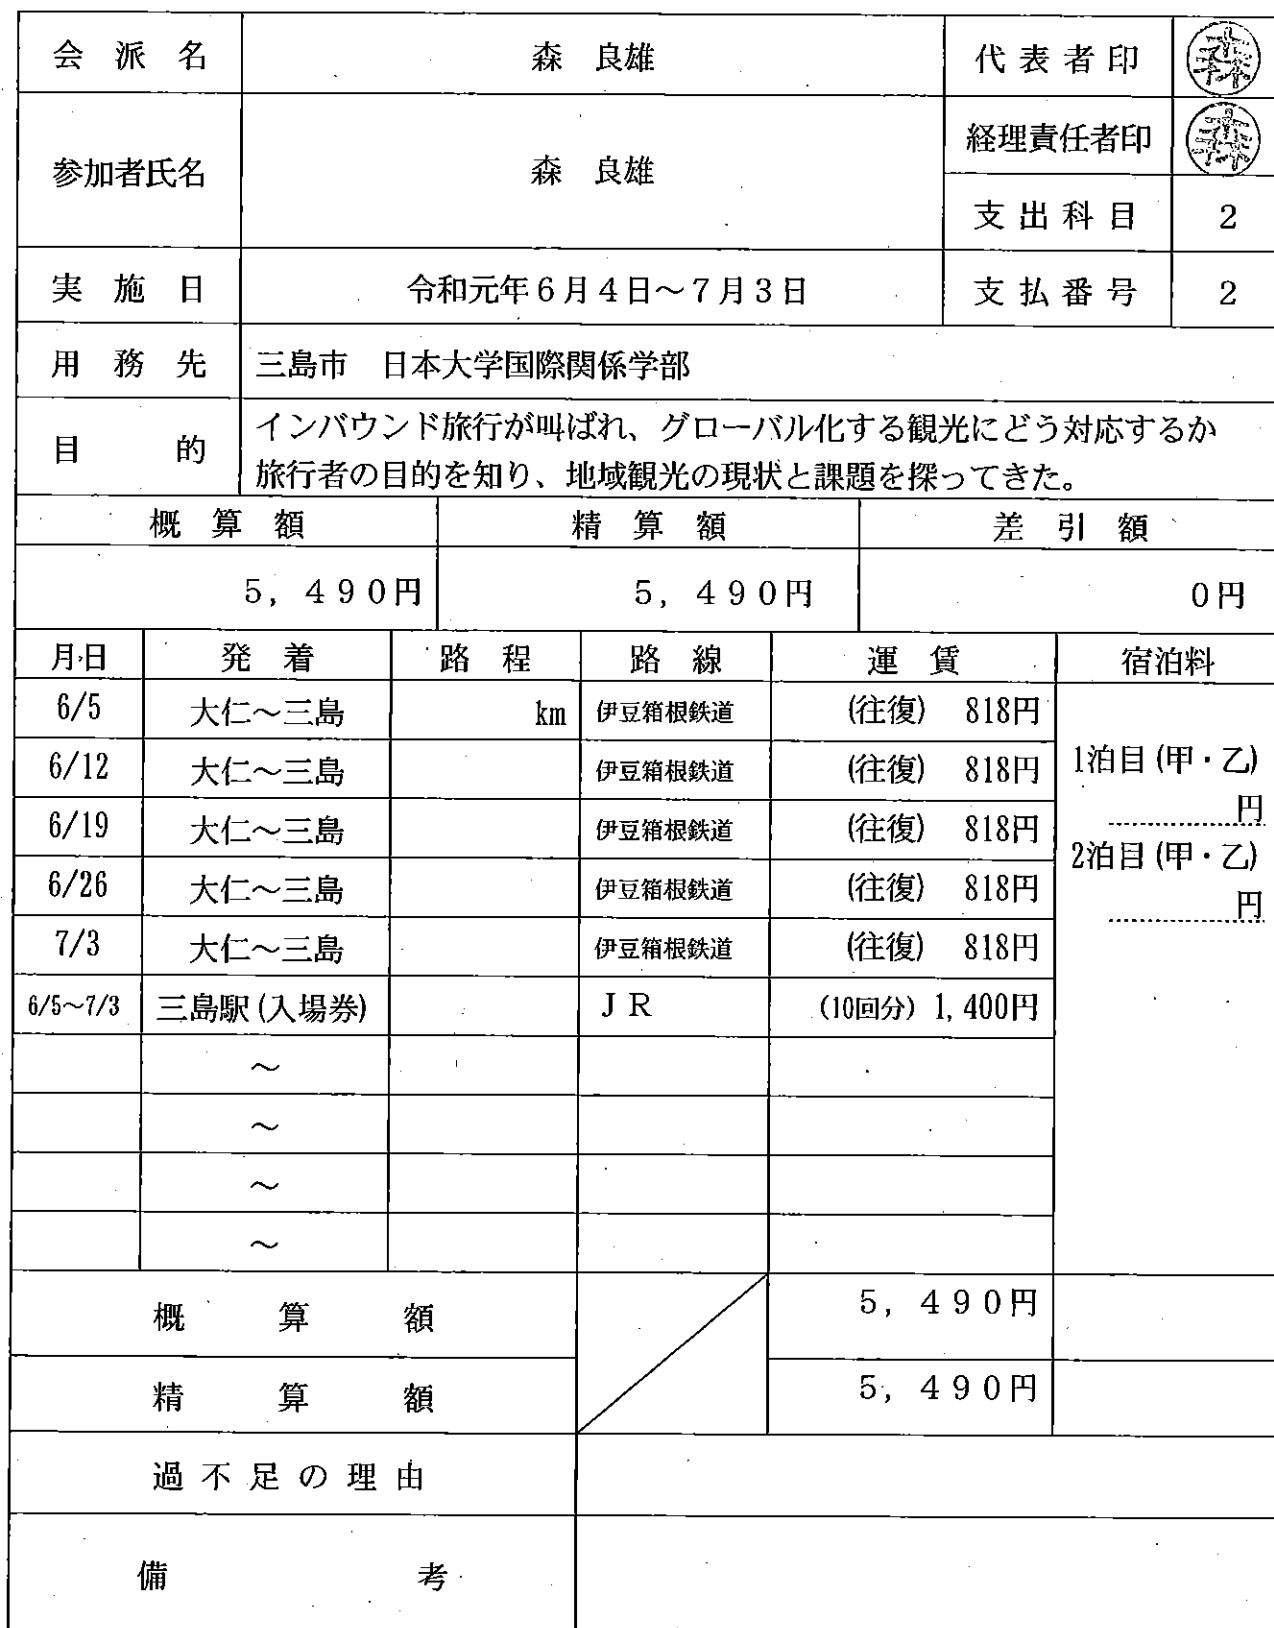 会派名 森 良雄 代表者印 森
参加者氏名 森 良雄 経理責任者印 森
支出科目 2
実施日 令和元年6月4日～7月3日 支払番号 2
用務先 三島市 日本大学国際関係学部
目的 インバウンド旅行が叫ばれ、グローバル化する観光にどう対応するか
旅行者の目的を知り、地域観光の現状と課題を探ってきた。
概算額 精算額 差引額
5,490円 5,490円 0円
月日 発着 路程 路線 運賃 宿泊料
6/5 大仁～三島 km 伊豆箱根鉄道 (往復) 818円
6/12 大仁～三島 伊豆箱根鉄道 (往復) 818円 1泊目(甲・乙)
円
6/19 大仁～三島 伊豆箱根鉄道 (往復) 818円
2泊目(甲・乙)
6/26 大仁～三島 伊豆箱根鉄道 (往復) 818円
円
7/3 大仁～三島 伊豆箱根鉄道 (往復) 818円
6/5～7/3 三島駅(入場券) JR (10回分) 1,400円
～
～
～
～
概算額 5,490円
精算額 5,490円
過不足の理由
備考